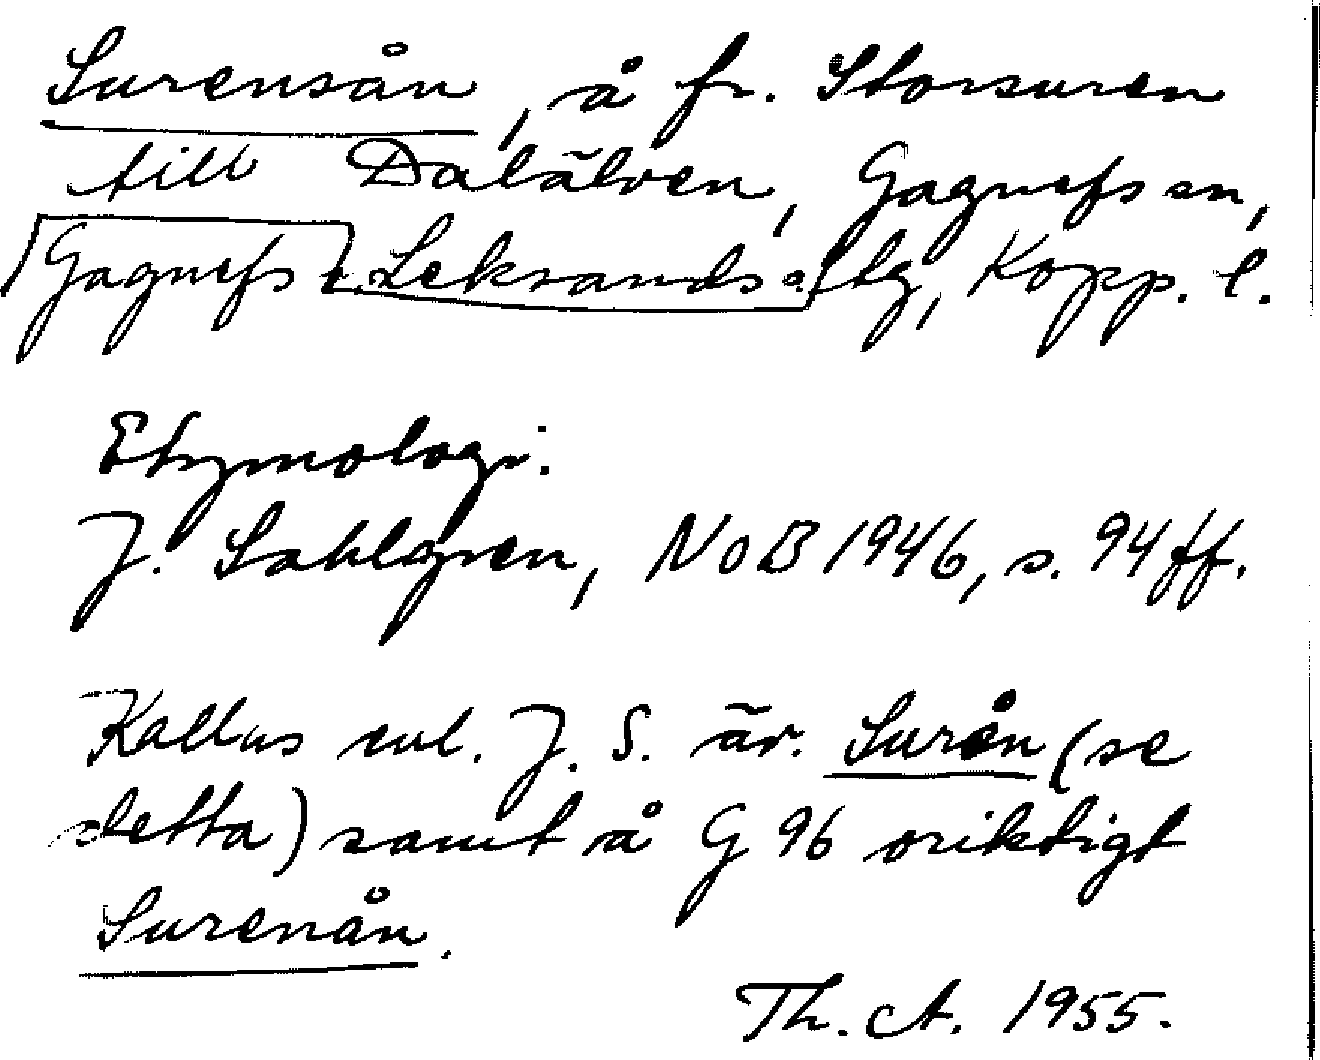 Surensån, å fr. Storsuren
till Dalälven, Gagnefs sn,
Gagnefs o. Leksands a. tlg, Kopp. l.
Etymologi:
J. Sahlgren, NoB 1946, s. 94 ff.
Kallas enl. J. S. äv. Surån (se
detta) samt å G 96 oriktigt
Surenån.
Th. A. 1955.